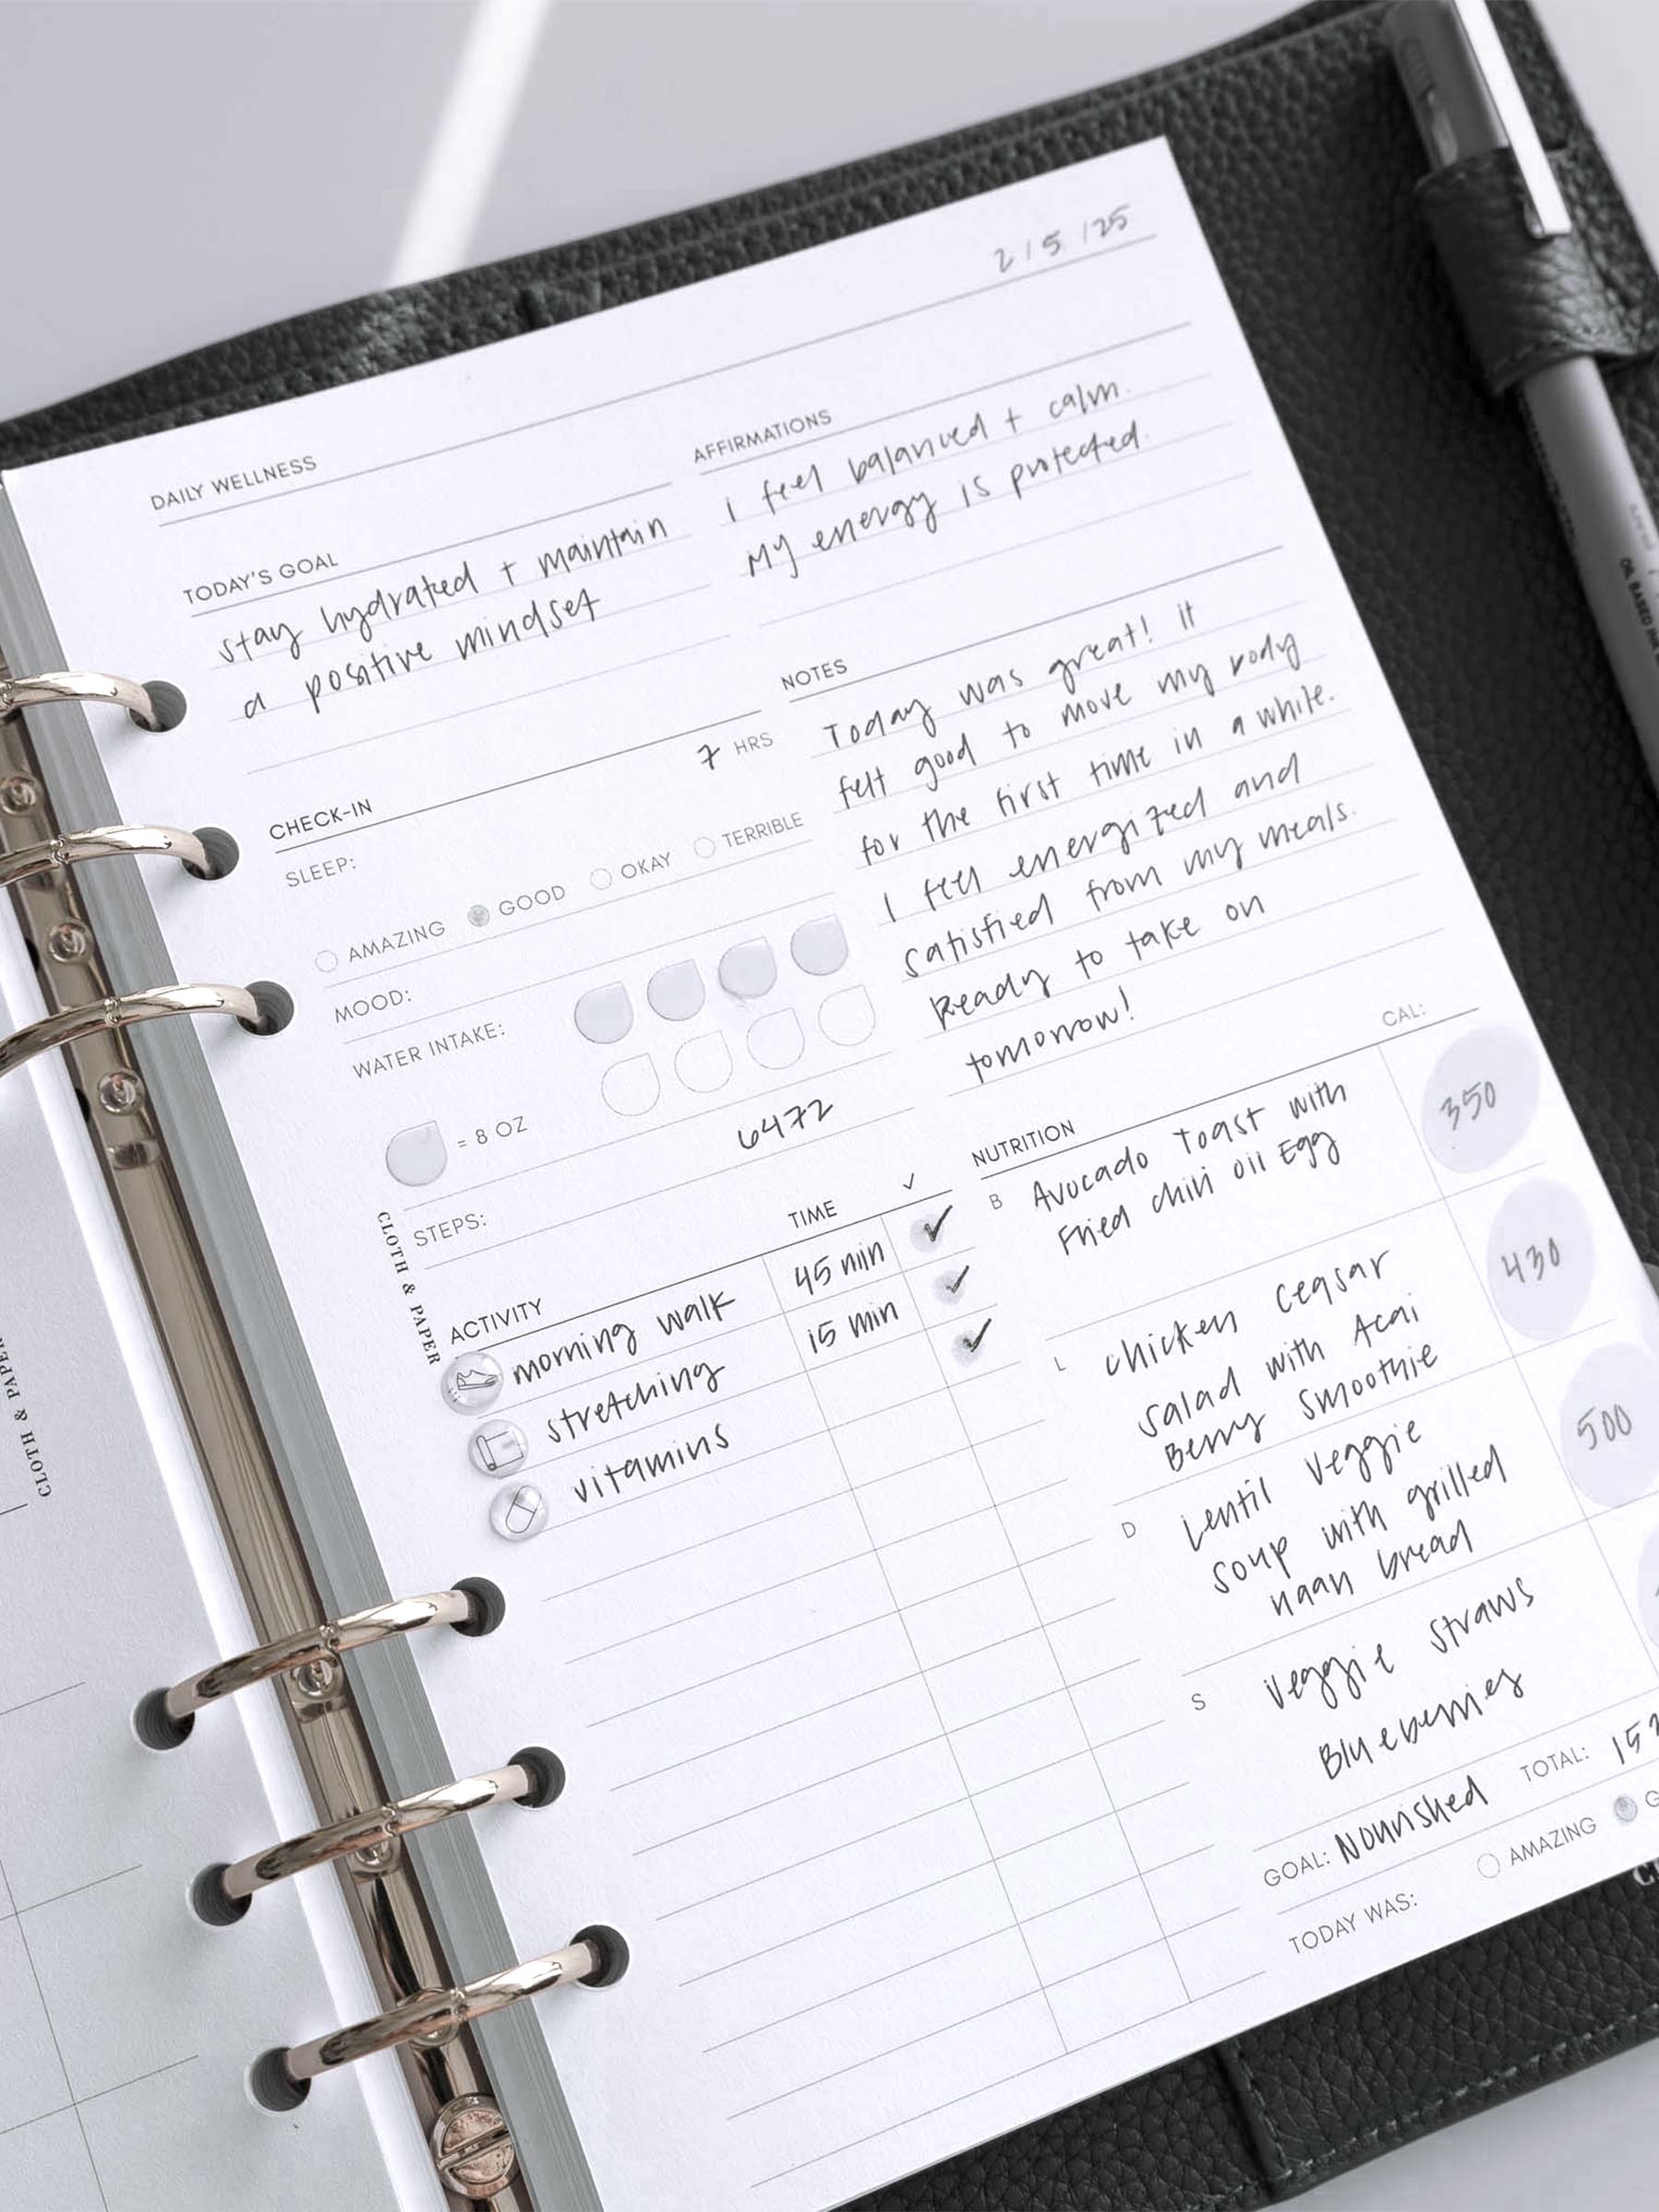 2/5/25
DAILY WELLNESS
TODAY'S GOAL
stay hydrated + maintain
a positive mindset
AFFIRMATIONS
I feel balanced + calm.
My energy is protected.
CHECK-IN
SLEEP: 7 HRS
AMAZING GOOD OKAY TERRIBLE
MOOD:
WATER INTAKE:
= 8 OZ
STEPS: 6472
NOTES
Today was great! it
felt good to move my body
for the first time in a while.
I feel energized and
satisfied from my meals.
Ready to take on
tomorrow!
ACTIVITY TIME ✓
morning walk 45 min ✓
stretching 15 min ✓
vitamins ✓
NUTRITION CAL:
B Avocado Toast with 350
Fried chili oil Egg
L chicken ceasar 430
salad with Acai
Berry smoothie
D Lentil veggie 500
soup with grilled
naan bread
S veggie straws
Blueberries
GOAL: Nourished TOTAL: 152
TODAY WAS: AMAZING G
CLOTH & PAPER
CLOTH & PAPER
OIL BASED IN